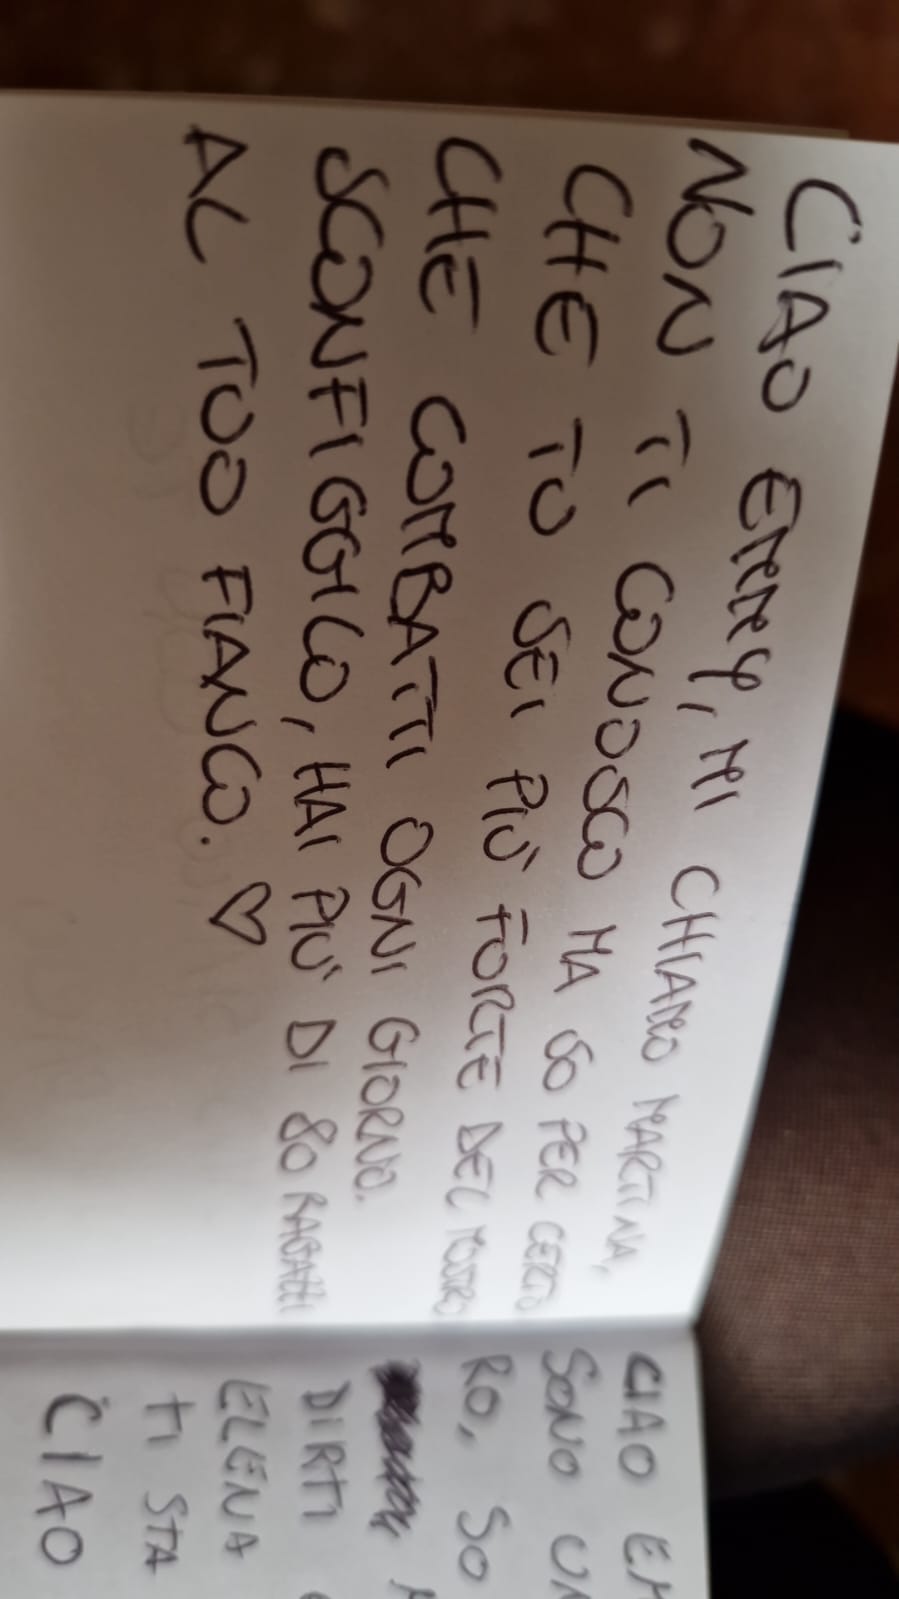 CIAO EMMY, MI CHIAMO MARTINA,
NON TI CONOSCO MA SO PER CERTO
CHE TU SEI PIÙ FORTE DEL MOSTRO
CHE COMBATTI OGNI GIORNO.
SCONFIGGILO, HAI PIÙ DI 80 RAGAZZI
AL TUO FIANCO. ♡
CIAO
SONO
RO, SO
DIRTI
ELENA
TI STA
CIAO